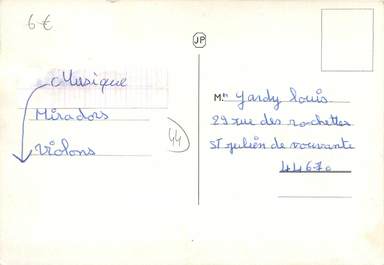 6 €
JP
Musique
Miradors
Violons
44
Mr Jardy Louis
29 rue des rochettes
St Julien de vouvante
44670